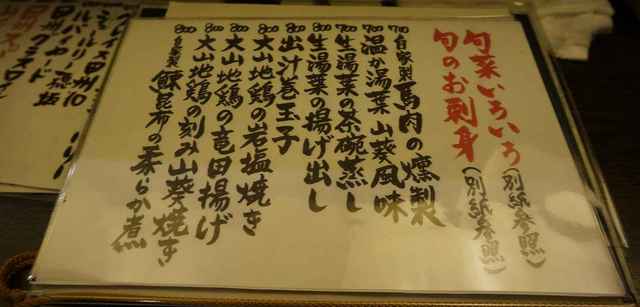 旬菜いろいろ(別紙参照)
旬のお刺身(別紙参照)
700 自家製馬肉の燻製
700 温か湯葉 山葵風味
700 生湯葉の茶碗蒸し
800 生湯葉の揚げ出し
800 出汁巻玉子
800 大山地鶏の岩塩焼き
800 大山地鶏の竜田揚げ
800 大山地鶏の刻み山葵焼き
800 自家製 鰊昆布の柔らか煮
グレイス甲州